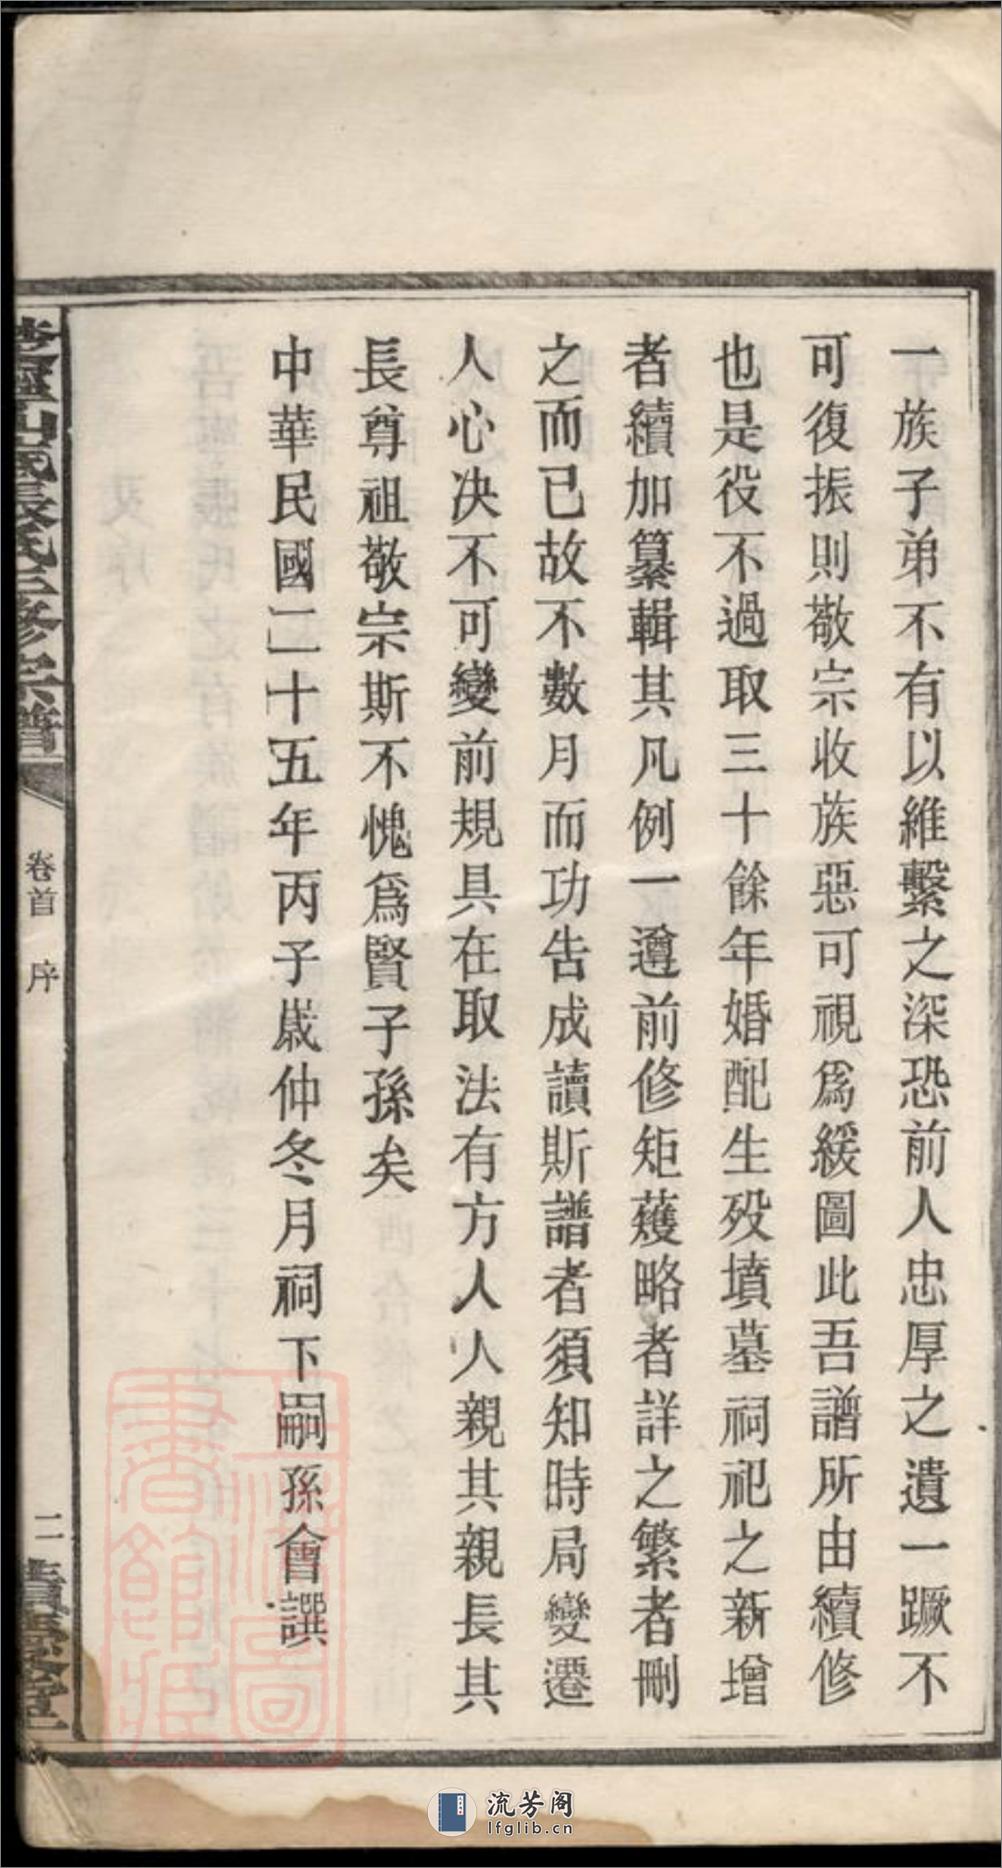 一族子弟不有以維繫之深恐前人忠厚之遺一蹶不
可復振則敬宗收族惡可視爲緩圖此吾譜所由續修
也是役不過取三十餘年婚配生歿墳墓祠祀之新增
者續加纂輯其凡例一遵前修矩矱略者詳之繁者刪
之而已故不數月而功告成讀斯譜者須知時局變遷
人心决不可變前規具在取法有方人人親其親長其
長尊祖敬宗斯不愧爲賢子孫矣
中華民國二十五年丙子歲仲冬月祠下嗣孫會譔
張氏三修宗譜
卷首 序
二
圖書館藏
流芳阁
lfglib.cn